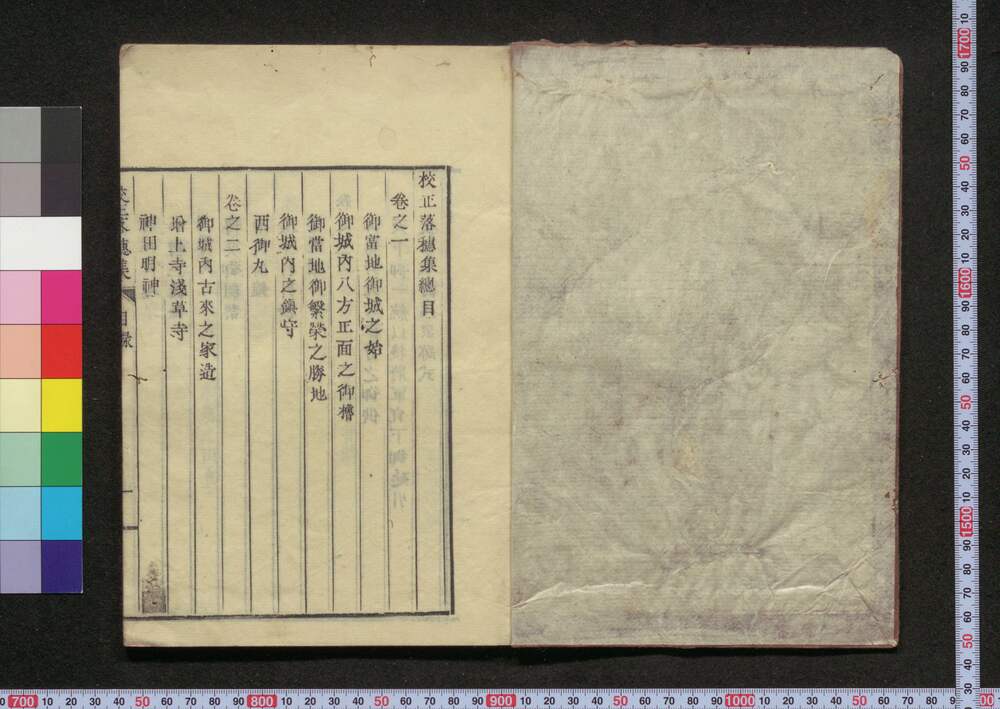 校正落穗集總目
卷之一
御當地御城之始
御城內八方正面之御櫓
御當地御繁榮之勝地
御城內之鎭守
西御丸
卷之二
御城內古來之家造
增上寺淺草寺
神田明神
校正落穗集 目錄 一